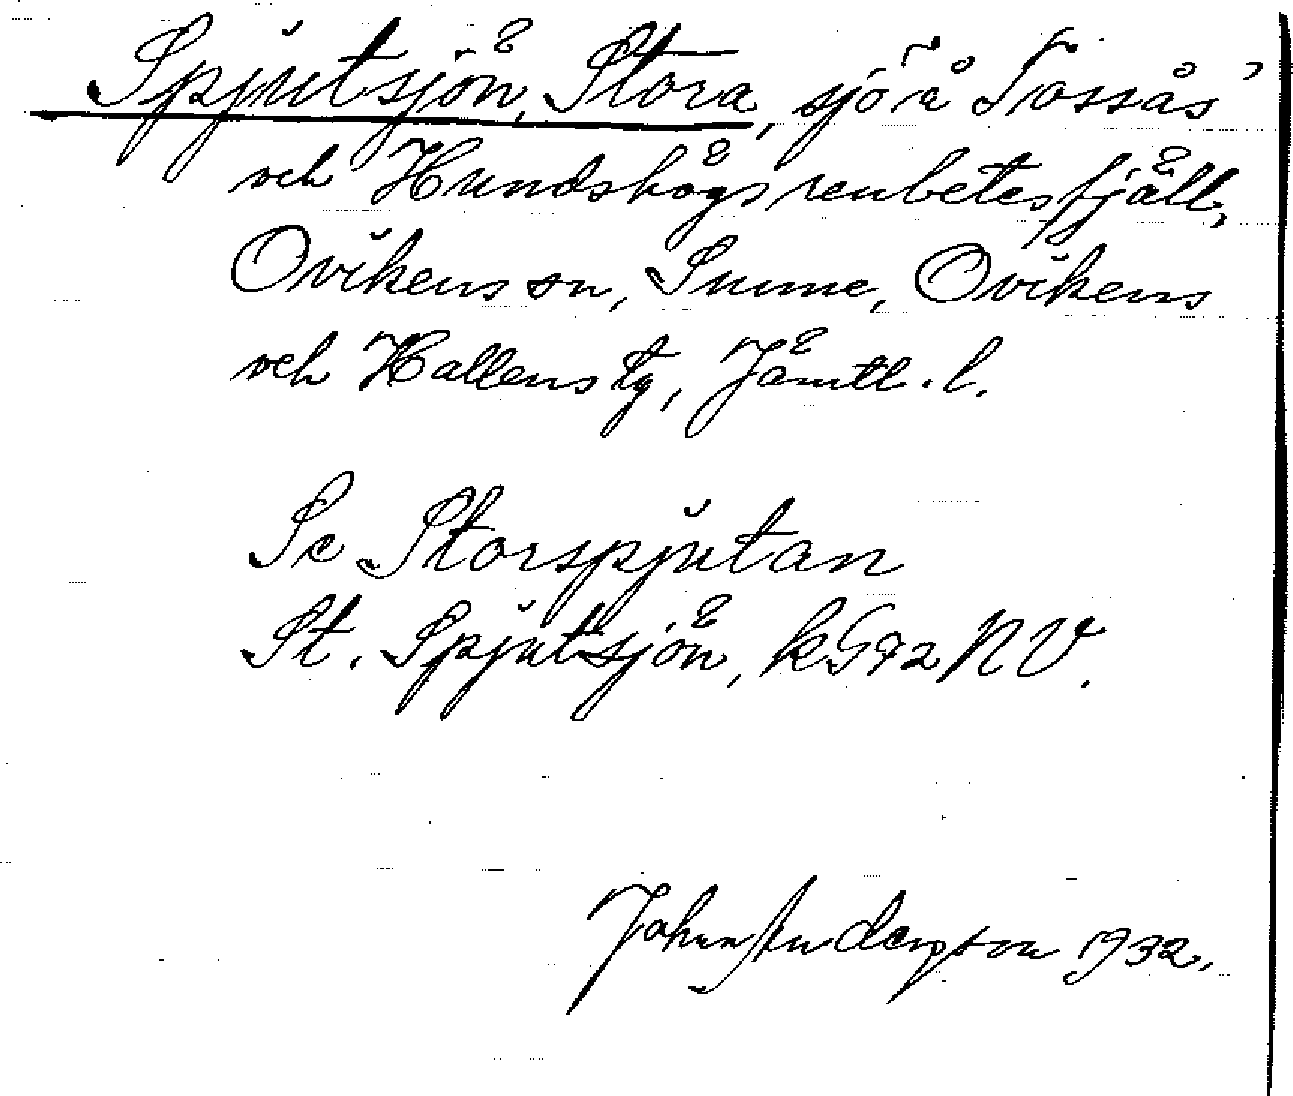 Spjutsjön, Stora, sjö å Tossås
och Hundshögs renbetesfjäll,
Ovikens sn, Sunne, Ovikens
och Hallens tg, Jämtl. l.
Se Storspjutan
St. Spjutsjön, k G 72 NV.
John Anderson 1932.